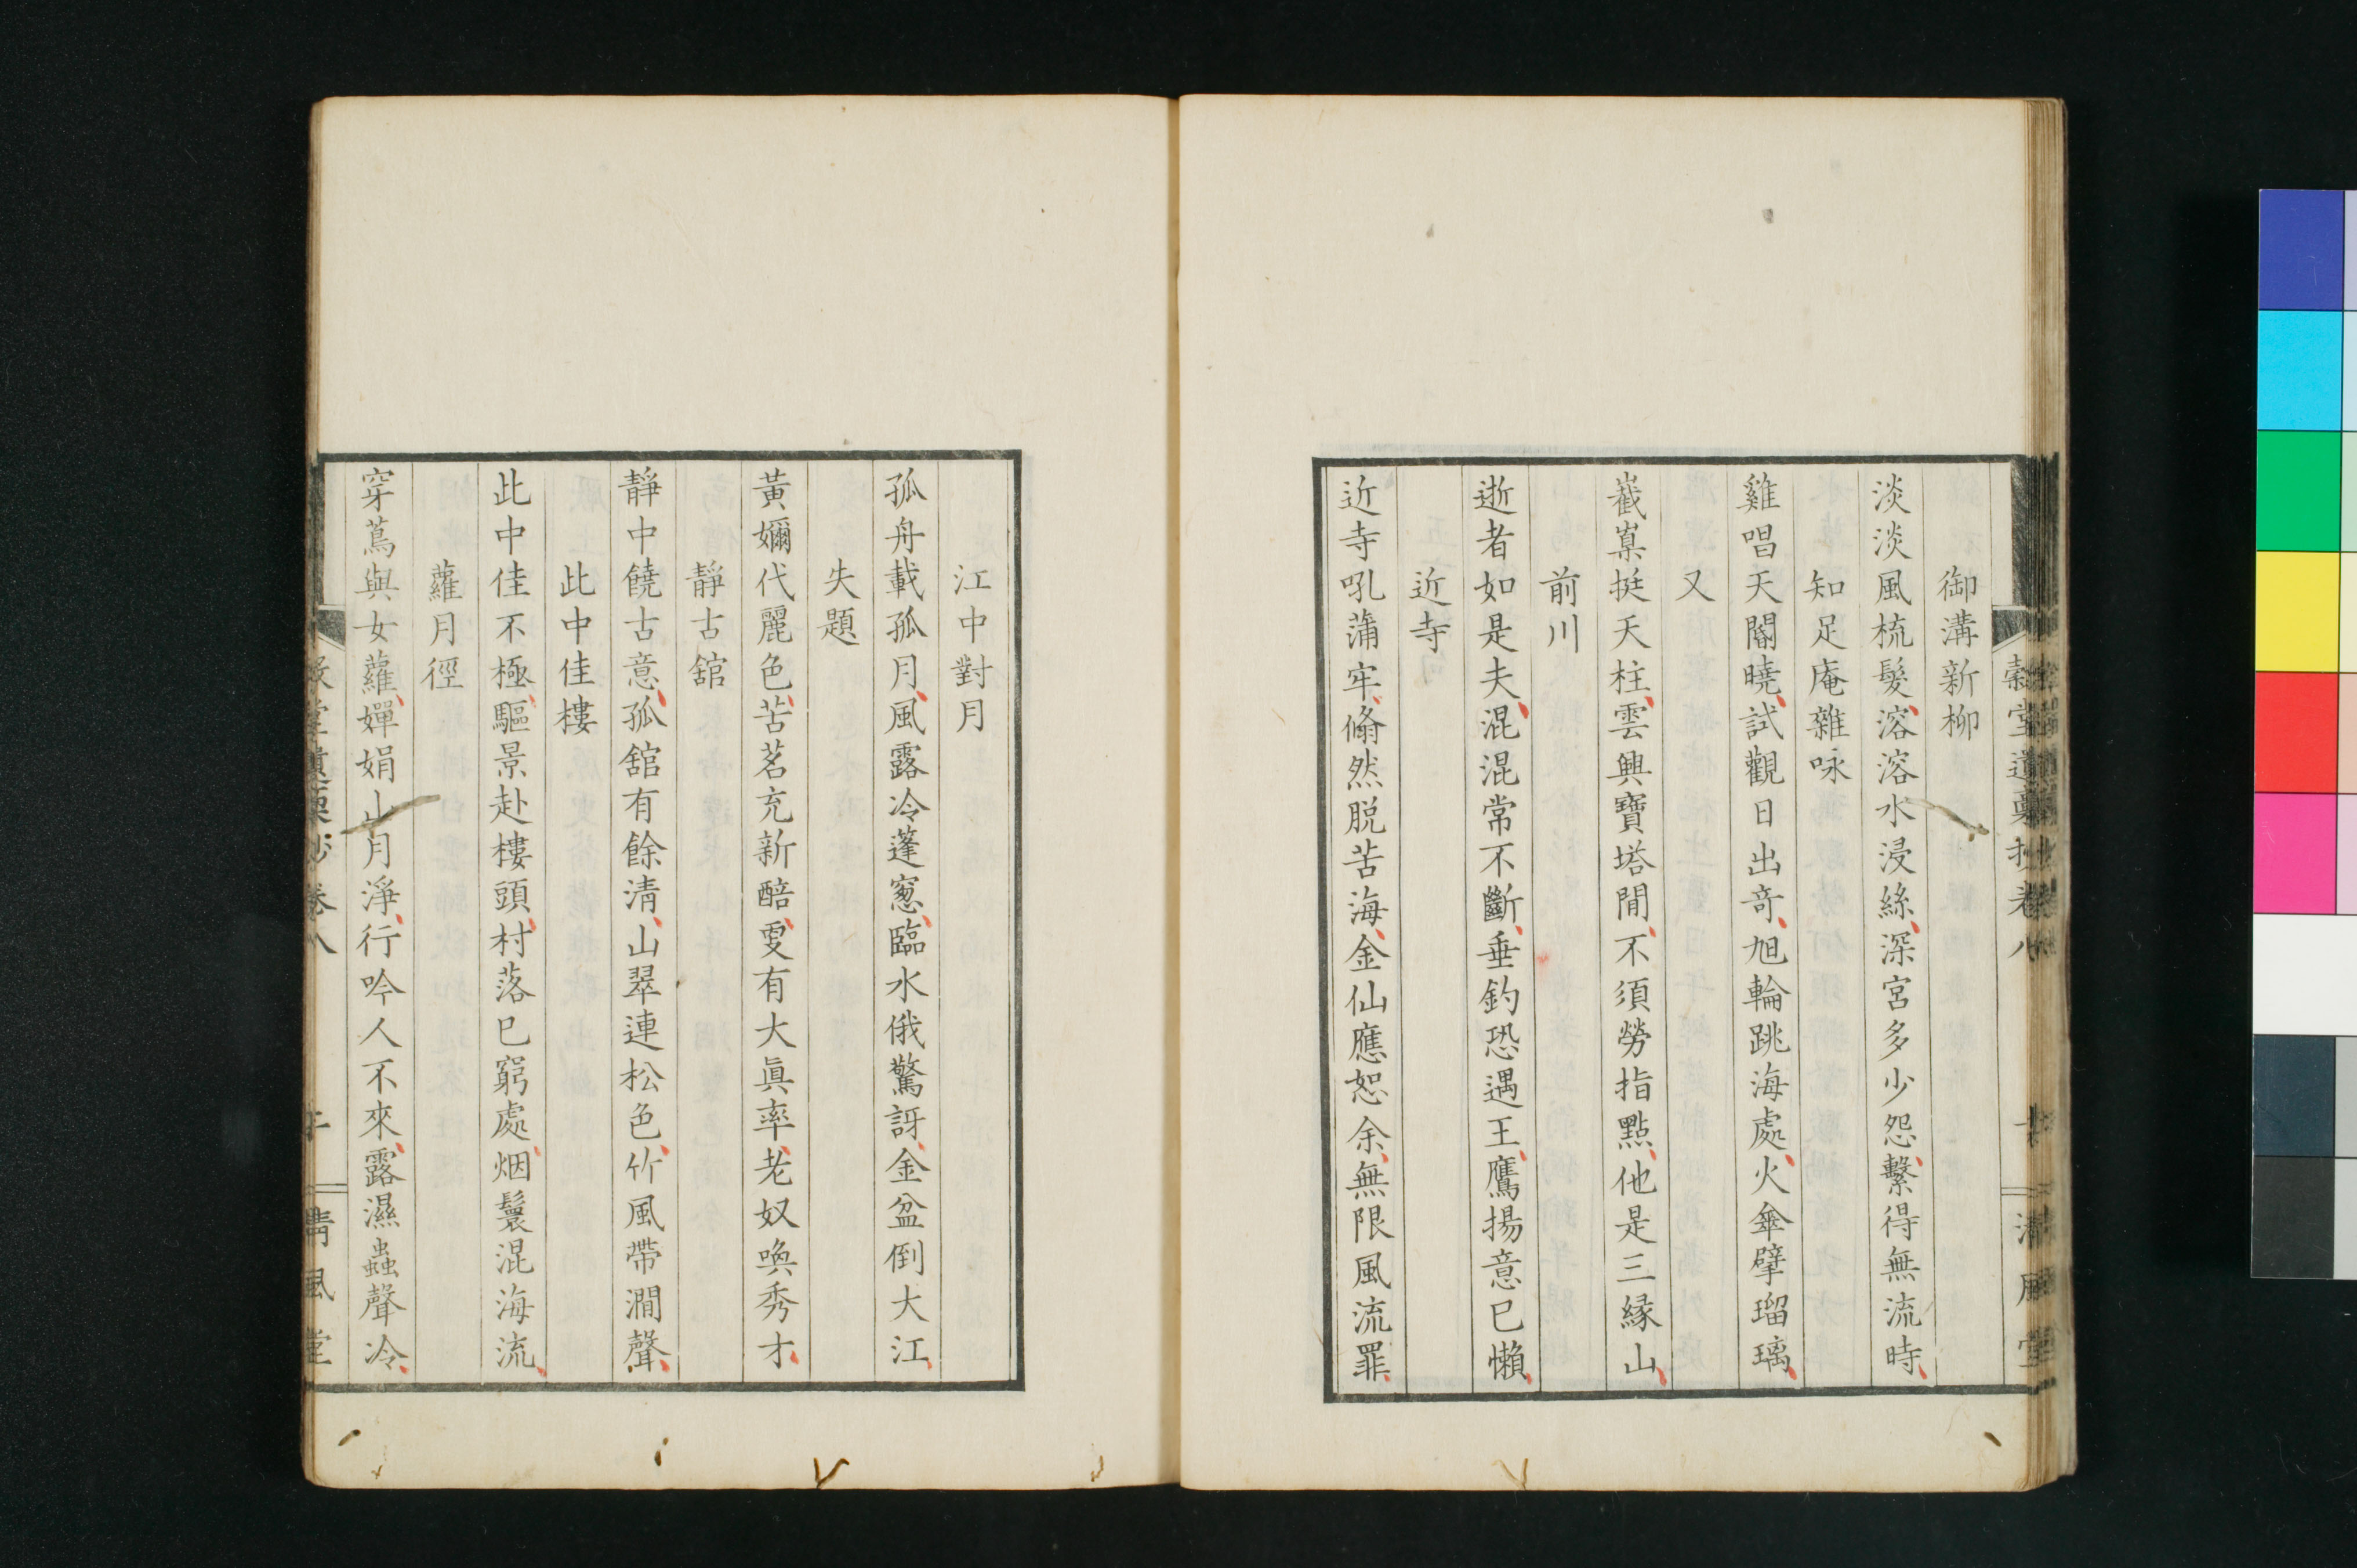 御溝新柳
淡淡風梳髮溶溶水浸絲深宮多少怨繫得無流時
知足庵雜咏
雞唱天閽曉試觀日出竒旭輪跳海處火傘擘瑠璃
又
嶻嶪挺天柱雲興寶塔間不須勞指點他是三緣山
前川
逝者如是夫混混常不斷垂釣恐遇王鷹揚意已懶
近寺
近寺吼蒲牢翛然脱苦海金仙應恕余無限風流罪
江中對月
孤舟載孤月風露冷蓬窻臨水俄驚訝金盆倒大江
失題
黃嬭代麗色苦茗充新醅更有大眞率老奴喚秀才
靜古舘
靜中饒古意孤舘有餘淸山翠連松色竹風帶澗聲
此中佳樓
此中佳不極驅景赴樓頭村落已窮處烟鬟混海流
蘿月徑
穿蔦與女蘿嬋娟山月淨行吟人不來露濕蟲聲冷